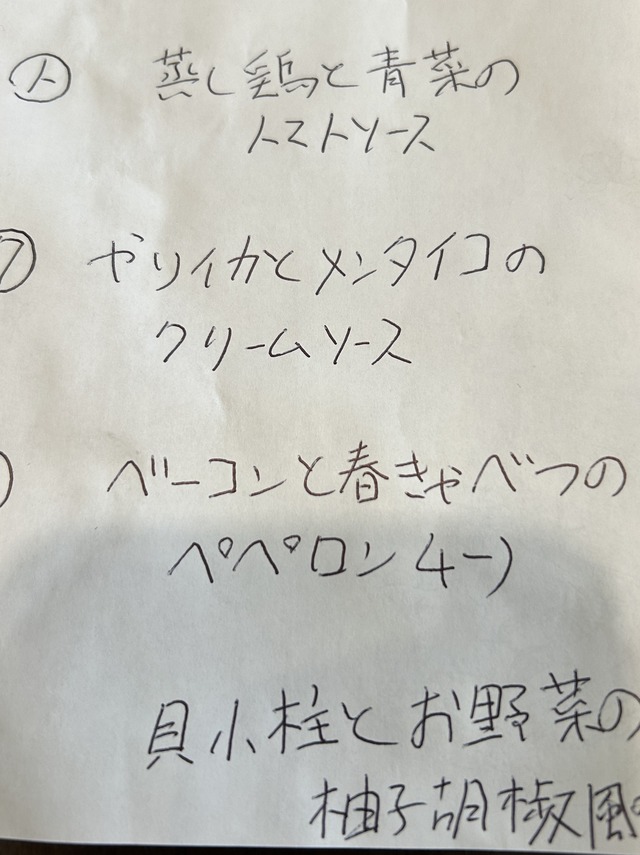 蒸し鶏と青菜の
トマトソース
ヤリイカとメンタイコの
クリームソース
ベーコンと春きゃべつの
ペペロンチーノ
貝小柱とお野菜の
柚子胡椒風